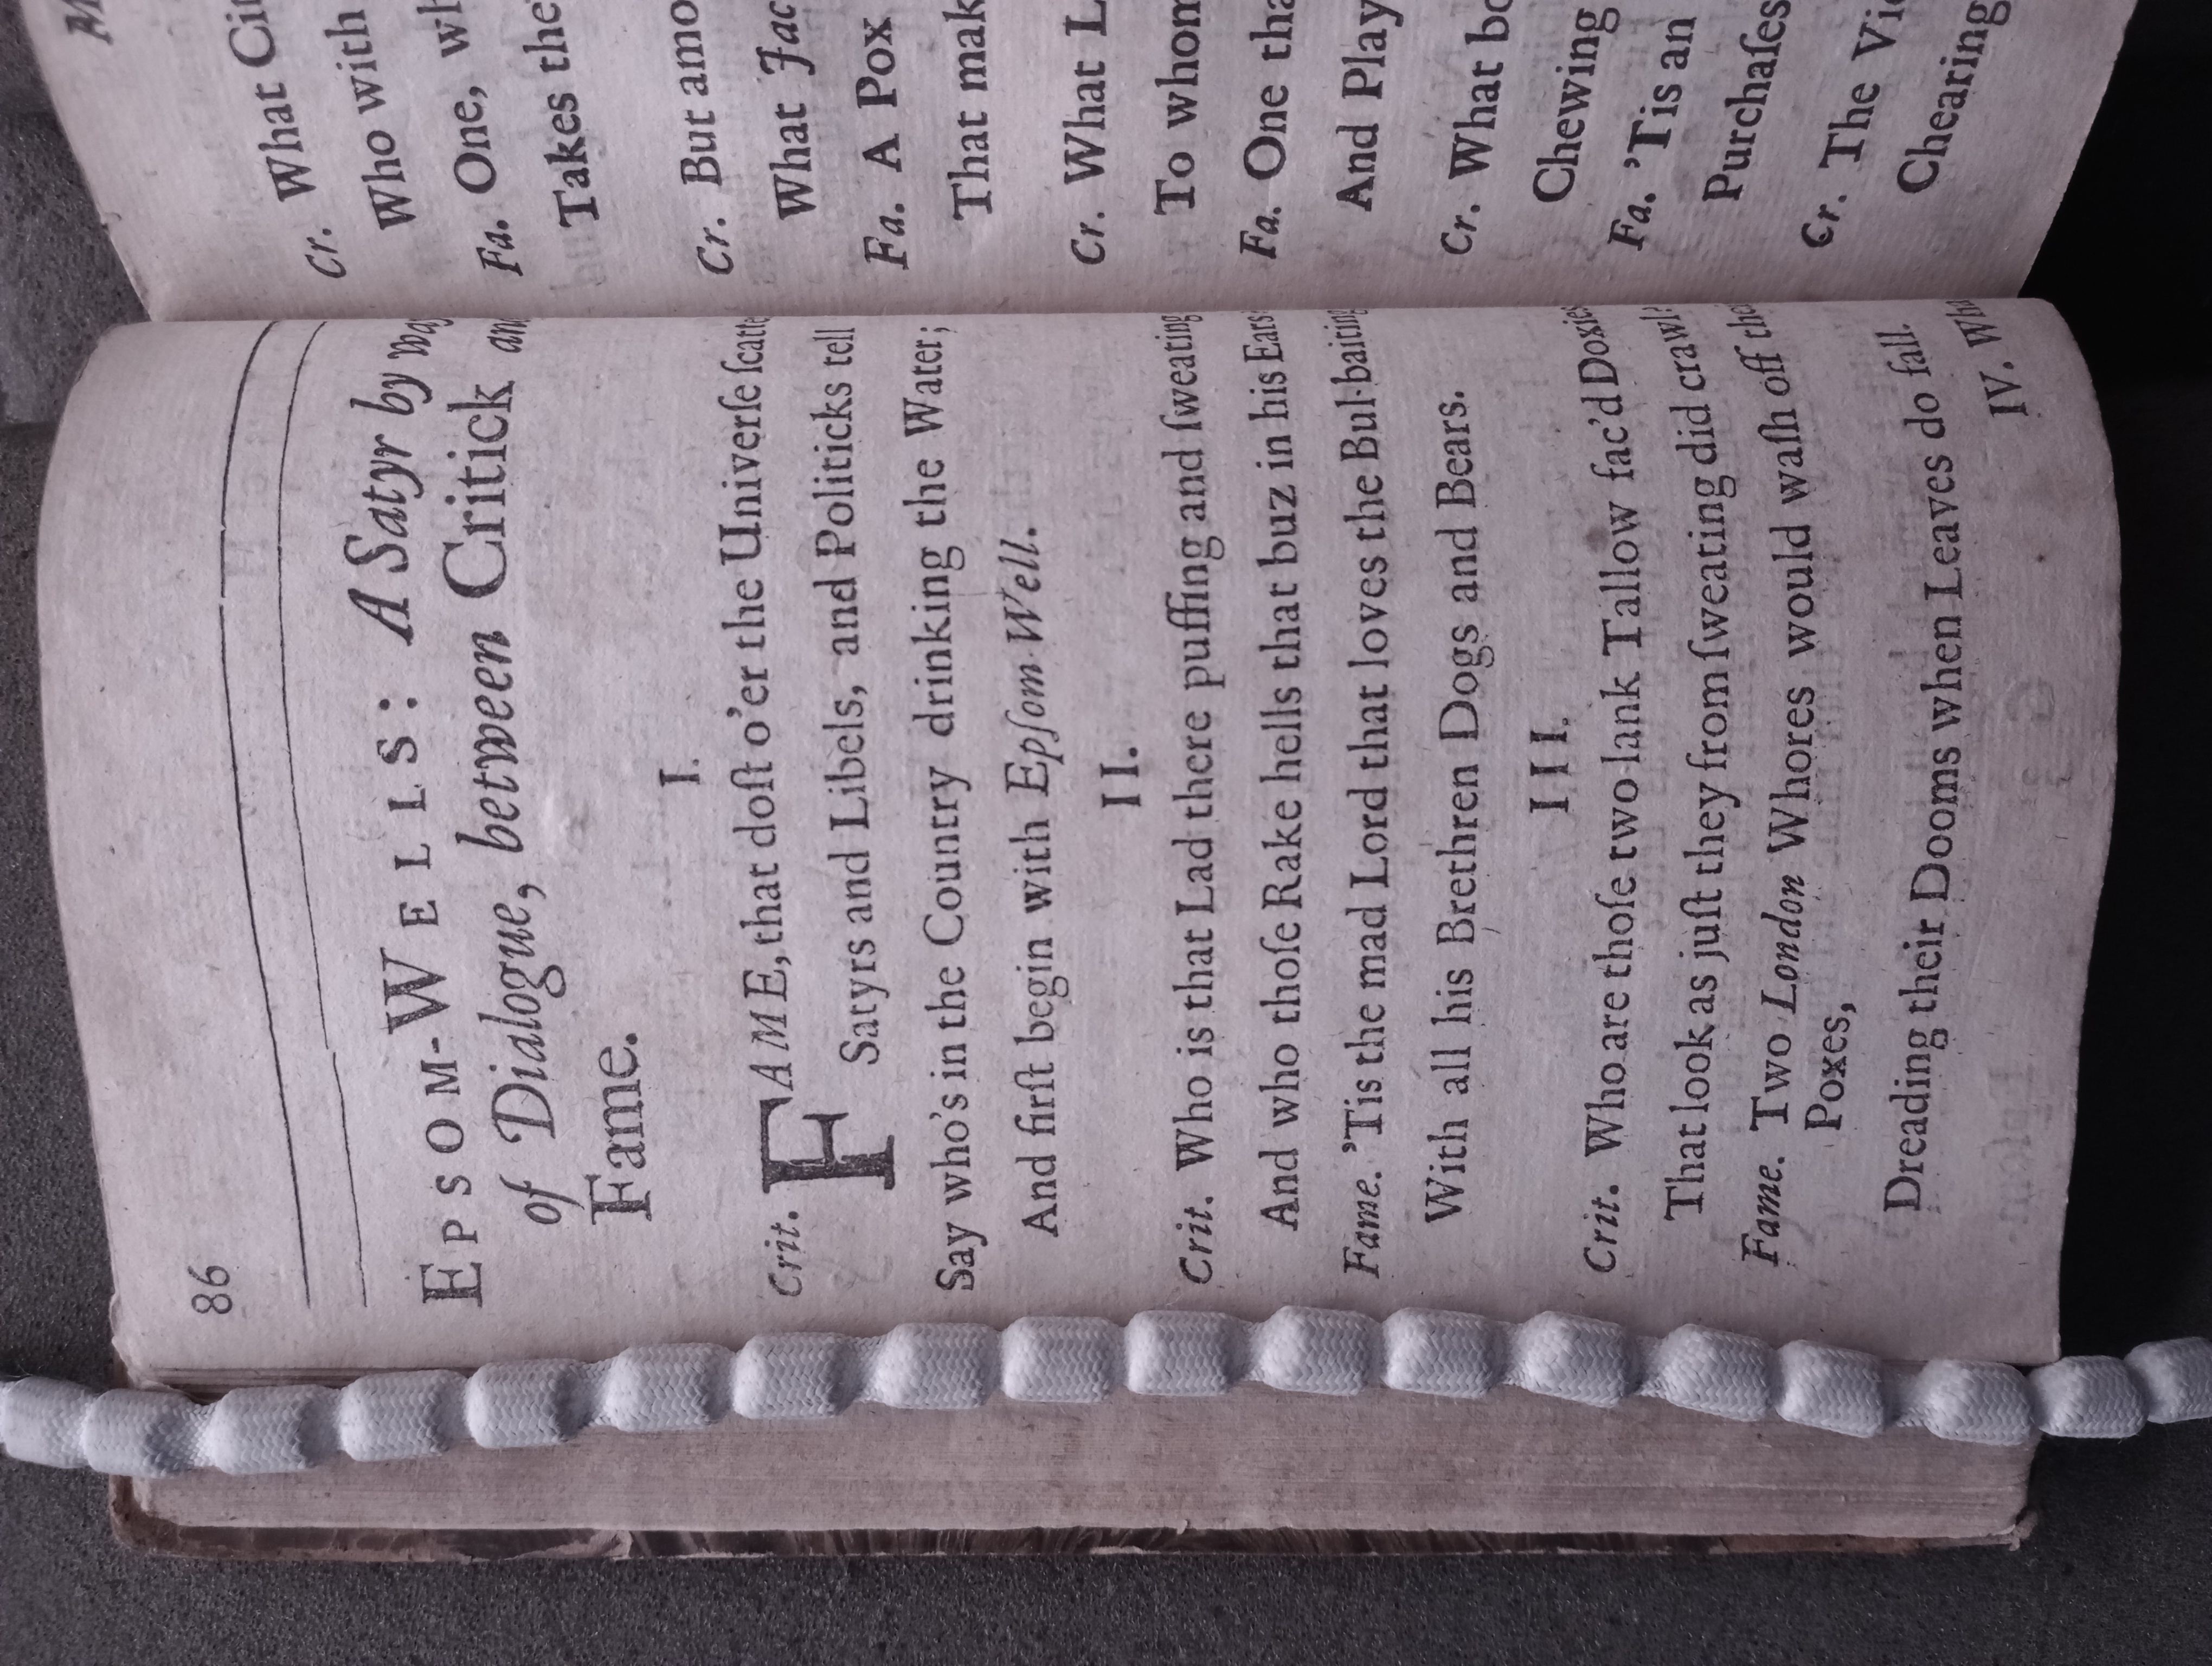 86
EPSOM-WELLS: A Satyr by Way
of Dialogue, between Critick and
Fame.
I.
Crit. FAME, that doſt o'er the Univerſe ſcatte
Satyrs and Libels, and Politicks tell
Say who's in the Country drinking the Water;
And firſt begin with Epſom-Well.
II.
Crit. Who is that Lad there puffing and ſweating
And who thoſe Rake hells that buz in his Ears
Fame. 'Tis the mad Lord that loves the Bul-baiting
With all his Brethren Dogs and Bears.
III.
Crit. Who are thoſe two lank Tallow fac'd Doxies
That look as juſt they from ſweating did crawl
Fame. Two London Whores would waſh off the
Poxes,
Dreading their Dooms when Leaves do fall.
IV. Wha
What Cit
Cr. Who with
Fa. One, wh
Takes the
Cr. But amo
What Jac
Fa. A Pox
That mak
Cr. What L
To whom
Fa. One tha
And Play
Cr. What bo
Chewing
Fa. 'Tis an
Purchaſes
Cr. The Vic
Chearing